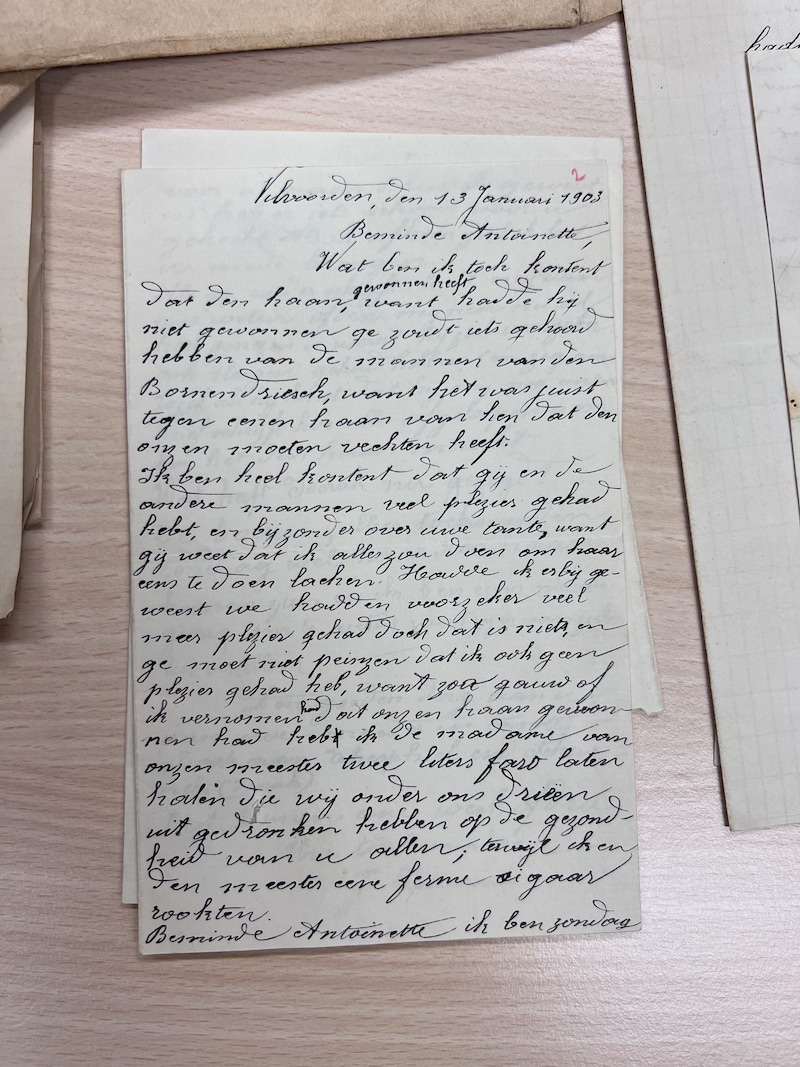 2
Vilvoorden, den 13 Januari 1903
Beminde Antoinette,
Wat ben ik toch kontent
dat den haan, gewonnen heeft want hadde hij
niet gewonnen ge zoudt iets gehoord
hebben van de mannen van den
Bosnendriesch, want het was juist
tegen eenen haan van hen dat den
onzen moeten vechten heeft.
Ik ben heel kontent dat gij en de
andere mannen veel plezier gehad
hebt, en bijzonder over uwe tante, want
gij weet dat ik alles zou doen om haar
eens te doen lachen. Hadde ik erbij ge-
weest we hadden voorzeker veel
meer plezier gehad doch dat is niets, en
ge moet niet peinzen dat ik ook geen
plezier gehad heb, want zoo gauw of
ik vernomen had dat onzen haan gewon-
nen had heb ik de madame van
onzen meester twee liters faro laten
halen die wij onder ons drieën
uit gedronken hebben op de gezond-
heid van u allen; terwijl ik en
den meester eene ferme sigaar
rookten.
Beminde Antoinette ik ben zondag